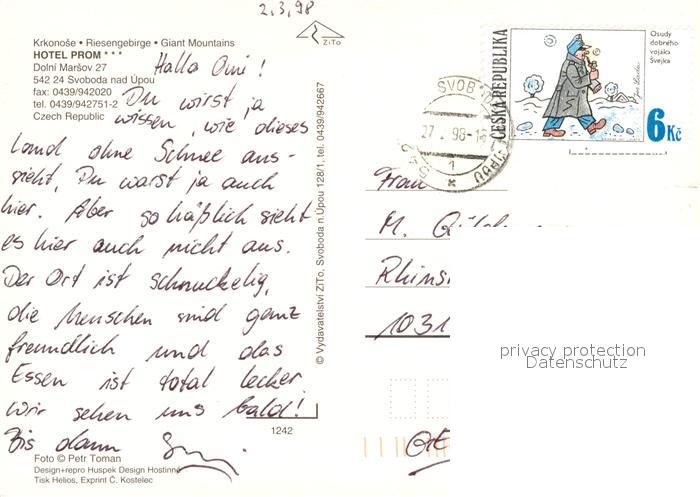 2.3.98
ZiTo
Krkonoše • Riesengebirge • Giant Mountains
HOTEL PROM ***
Dolní Maršov 27
542 24 Svoboda nad Úpou
fax: 0439/942020
tel. 0439/942751-2
Czech Republic
Hallo Omi!
Du wirst ja
wissen, wie dieses
Land ohne Schnee aus-
sieht, Du warst ja auch
hier. Aber so häßlich sieht
es hier auch nicht aus.
Der Ort ist schnuckelig,
die Menschen sind ganz
freundlich und das
Essen ist total lecker.
Wir sehen uns bald!
Bis dann
Foto © Petr Toman
Design+repro Huspek Design Hostinné
Tisk Helios, Exprint Č. Kostelec
1242
© Vydavatelství ZiTo, Svoboda n.Úpou 128/1, tel. 0439/942667
ČESKÁ REPUBLIKA
Osudy
dobrého
vojáka
Švejka
6 Kč
27 . 98-1
1
Frau
M.
Rhins
1031
privacy protection
Datenschutz